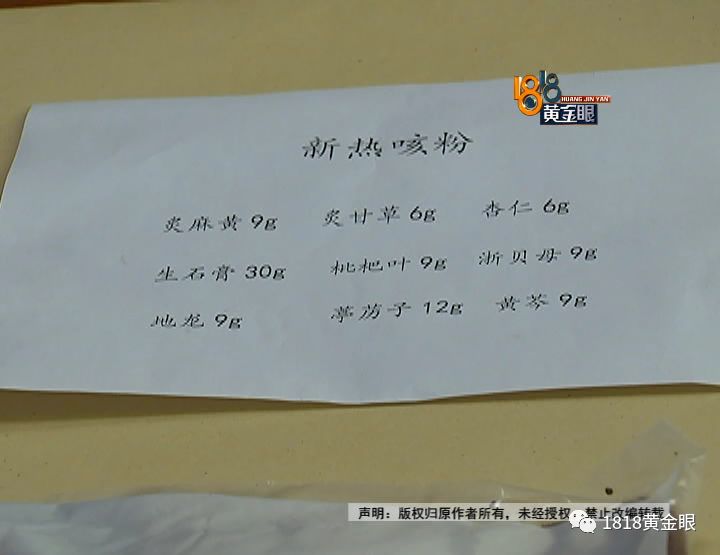 1818
HUANG JIN YAN
黄金眼
新热咳粉
炙麻黄 9g 炙甘草 6g 杏仁 6g
生石膏 30g 枇杷叶 9g 浙贝母 9g
地龙 9g 葶苈子 12g 黄芩 9g
声明：版权归原作者所有，未经授权，禁止改编转载
1818黄金眼